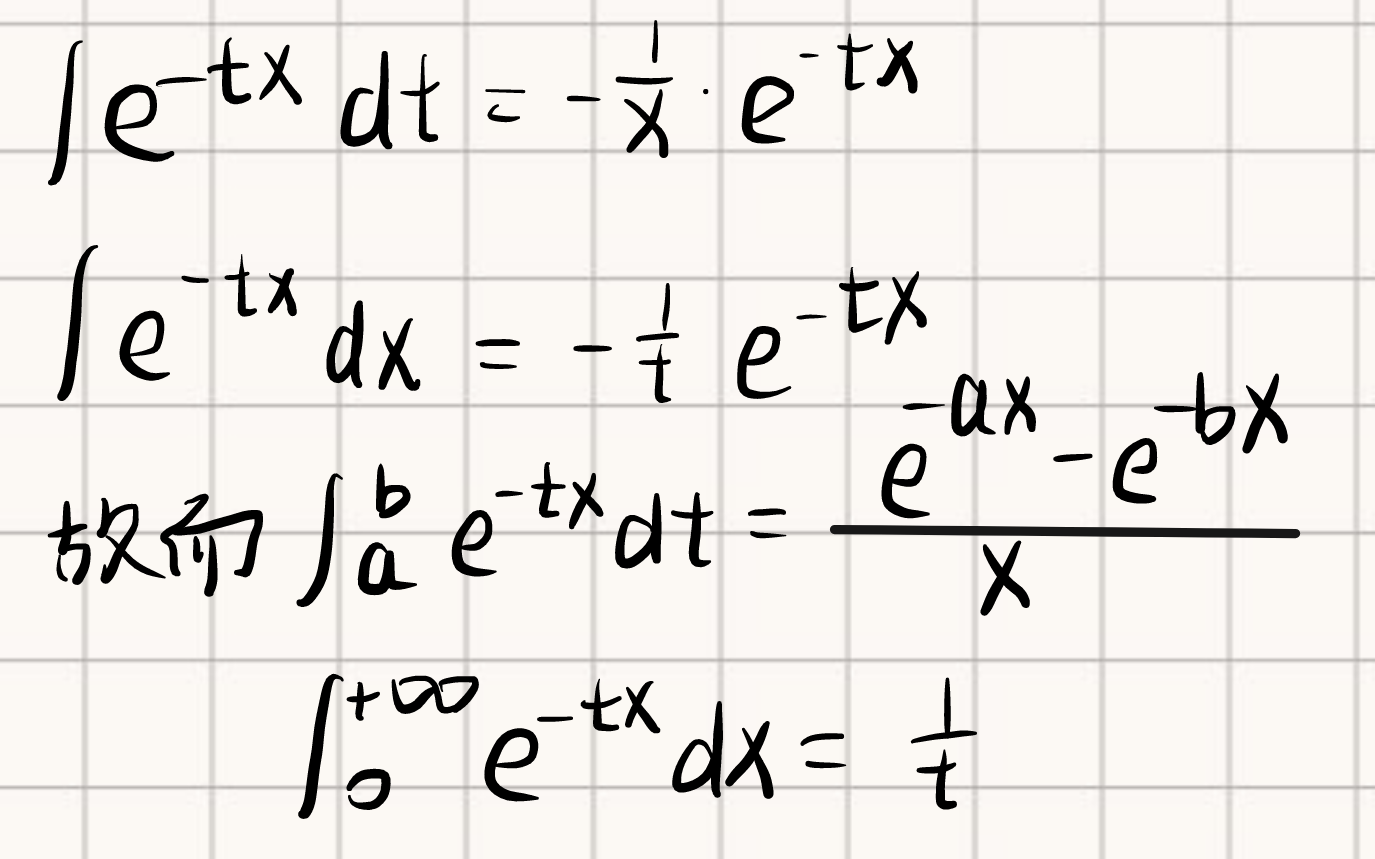 ∫ e^{-tx} dt = -\frac{1}{x} · e^{-tx}
∫ e^{-tx} dx = -\frac{1}{t} e^{-tx}
故而 ∫_a^b e^{-tx} dt = \frac{e^{-ax} - e^{-bx}}{x}
∫_0^{+∞} e^{-tx} dx = \frac{1}{t}